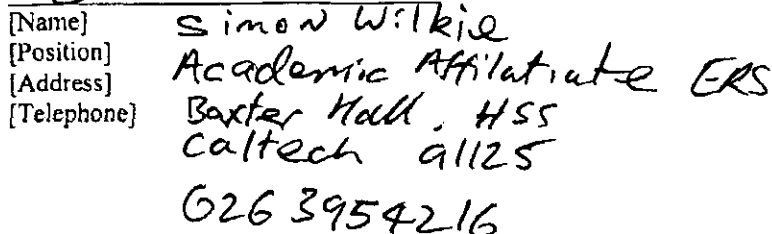 [Name] Simon Wilkie
[Position] Academic Affilatiate ERS
[Address] Baxter Hall, HSS
[Telephone] Caltech 91125
626 3954216